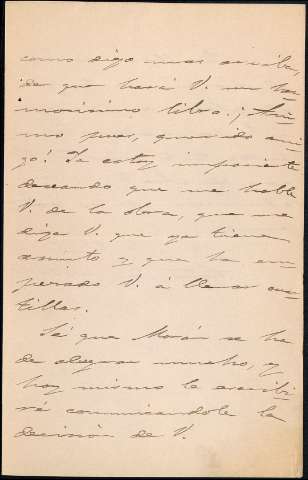 como digo mas arriba,
de que hará V. un her-
mosisimo libro. ¡Ani-
mo pues, querido ami-
go! Ya estoy impaciente
deseando que me hable
V. de la obra, que me
diga V. que ya tiene
asunto y que ha em-
pezado V. á llenar cuar-
tillas.
Sé que Morán se ha
de alegrar mucho, y
hoy mismo le escribi-
ré comunicandole la
decisión de V.